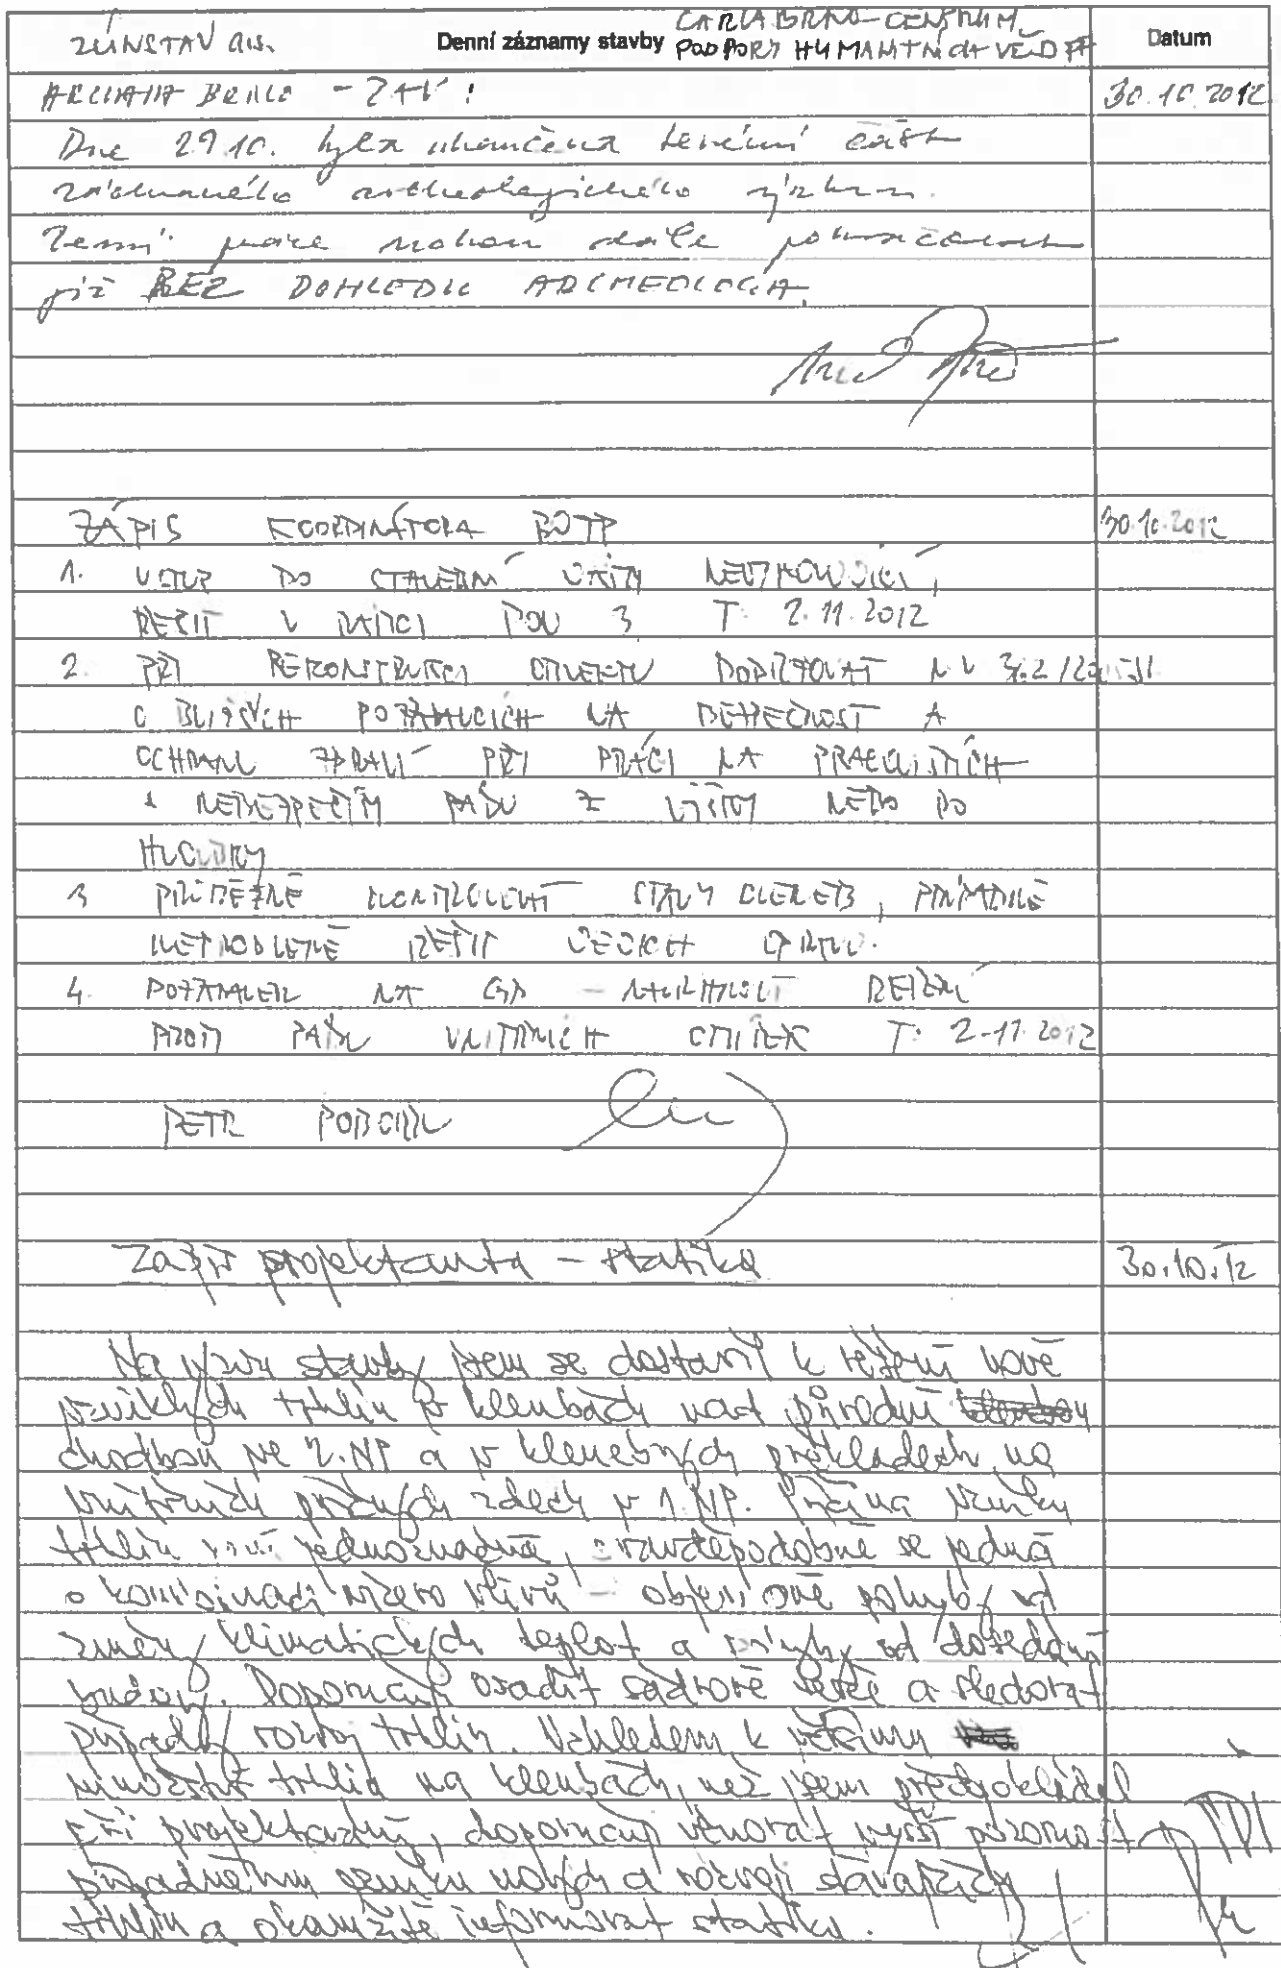 Denní záznamy stavby CARLA BRNO - CENTRUM
PODPORY HUMANITNÍCH VĚD FF
Datum
ARCHAIA BRNO - ZAV: 30.10.2012
Dne 29.10. byla ukončena terénní část
záchranného archeologického výzkumu.
Zemní práce mohou dále pokračovat
již BEZ DOHLEDU ARCHEOLOGA.
ZÁPIS KOORDINÁTORA BOZP 30.10.2012
1. VSTUP DO STAVEBNÍ NEVYHOVUJÍCÍ,
ŘEŠIT V RÁMCI 3 T: 2.11.2012
2. PŘI REKONSTRUKCI DODRŽOVAT NV
O BLIŽŠÍCH POŽADAVCÍCH NA BEZPEČNOST A
OCHRANU ZDRAVÍ PŘI PRÁCI NA PRACOVIŠTÍCH
S NEBEZPEČÍM PÁDU Z VÝŠKY NEBO DO
HLOUBKY
3 PRŮBĚŽNĚ KONTROLOVAT STAVY KLENEB, PŘÍPADNĚ
ŘEŠIT JEJICH OPRAVU.
4. POŽADAVEK NA - NAVRHNOUT ŘEŠENÍ
PROTI PÁDU VNITŘNÍCH T: 2.11.2012
PETR
Zápis projektanta - statika 30.10.12
Na výzvu stavby jsem se dostavil k řešení nově
vzniklých trhlin v klenbách nad původní
chodbou ve 2.NP a v klenebných překladech na
vnitřních příčných zdech v 1.NP. Příčina vzniku
trhlin není jednoznačná, pravděpodobně se jedná
o kombinaci více vlivů - objemové pohyby od
změny klimatických teplot a pohyby od dosedání
budovy. Doporučuji osadit sádrové terče a sledovat
případný rozvoj trhlin. Vzhledem k většímu
množství trhlin na klenbách, než jsem předpokládal
při projektování, doporučuji věnovat vyšší pozornost
případnému vzniku nových a rozvoji stávajících
trhlin a okamžitě informovat statika.